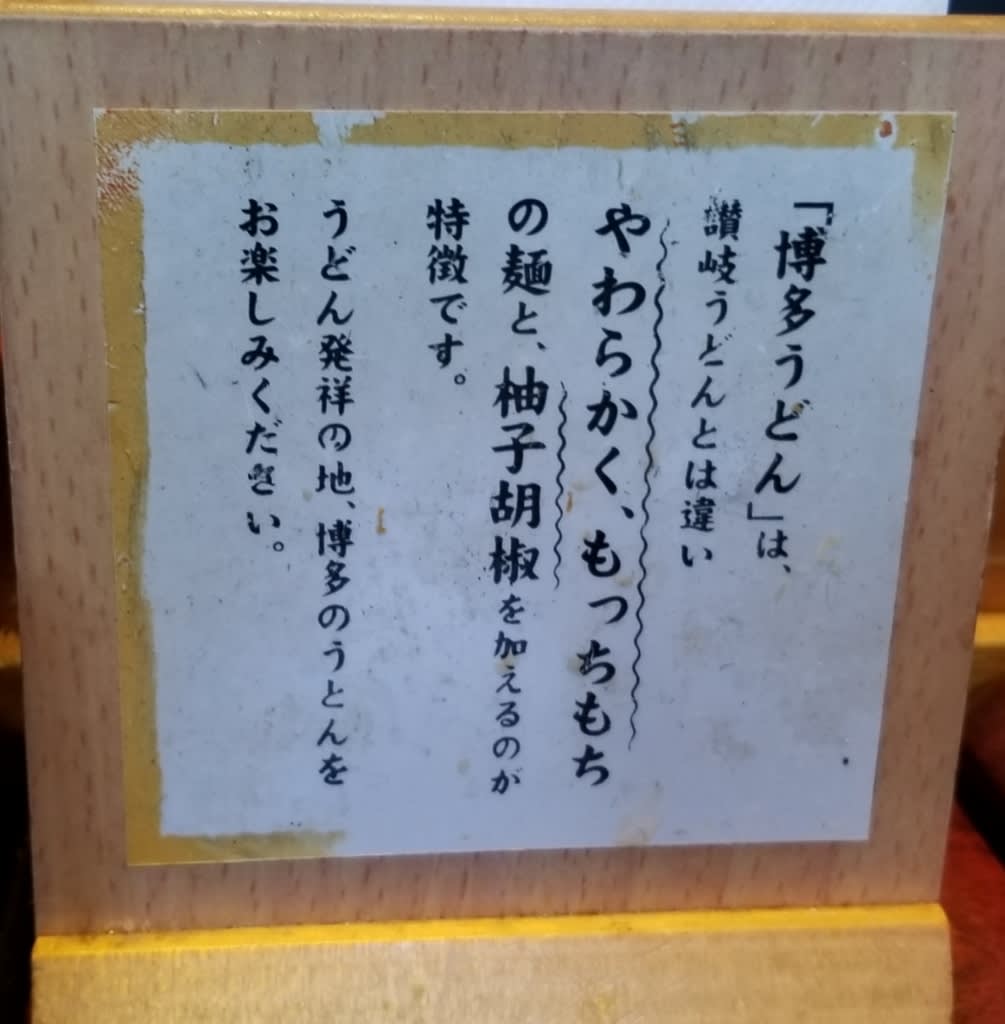 「博多うどん」は、
讃岐うどんとは違い
やわらかく、もっちもち
の麺と、柚子胡椒を加えるのが
特徴です。
うどん発祥の地、博多のうどんを
お楽しみください。